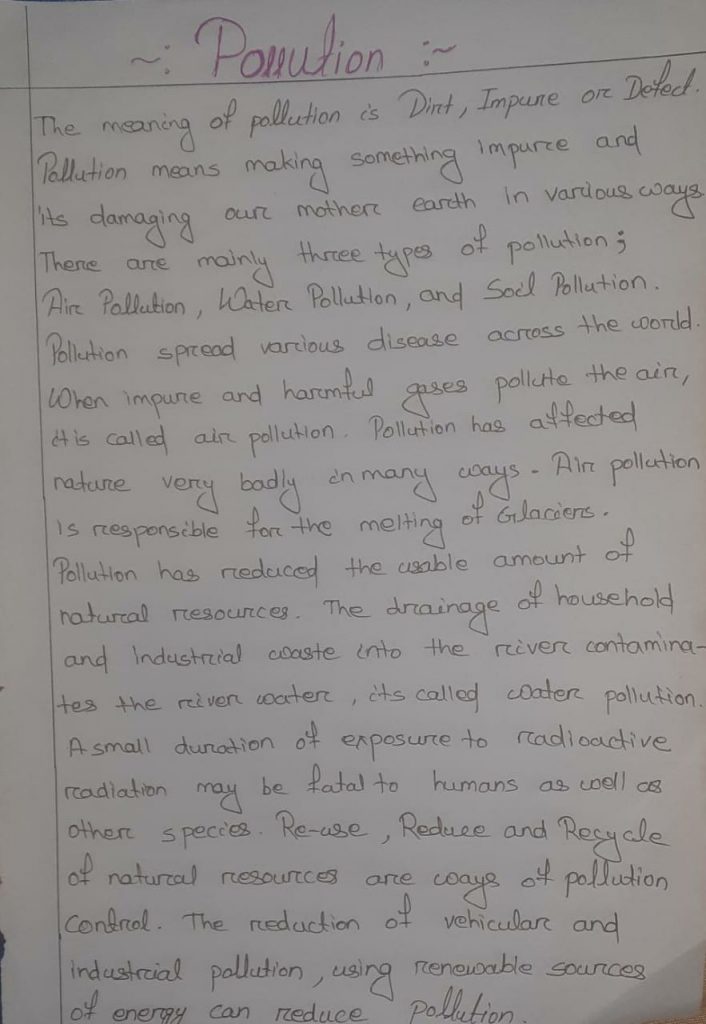 ~: Pollution :~
The meaning of pollution is Dirt, Impure or Defect.
Pollution means making something impure and
its damaging our mother earth in various ways
There are mainly three types of pollution;
Air Pollution, Water Pollution, and Soil Pollution.
Pollution spread various disease across the world.
When impure and harmful gases pollute the air,
it is called air pollution. Pollution has affected
nature very badly in many ways. Air pollution
is responsible for the melting of Glaciers.
Pollution has reduced the usable amount of
natural resources. The drainage of household
and industrial waste into the river contamina-
tes the river water, its called water pollution.
A small duration of exposure to radioactive
radiation may be fatal to humans as well as
other species. Re-use, Reduce and Recycle
of natural resources are ways of pollution
Control. The reduction of vehicular and
industrial pollution, using renewable sources
of energy can reduce pollution.